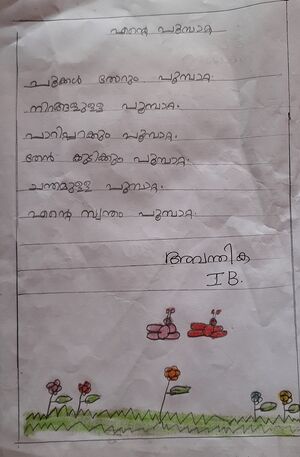 എന്റെ പൂമ്പാറ്റ
പൂക്കൾ തോറും പൂമ്പാറ്റ.
നിറങ്ങളുള്ള പൂമ്പാറ്റ.
പാറിപ്പറക്കും പൂമ്പാറ്റ.
തേൻ കുടിക്കും പൂമ്പാറ്റ.
ചന്തമുള്ള പൂമ്പാറ്റ.
എന്റെ സ്വന്തം പൂമ്പാറ്റ.
അവന്തിക
I B.